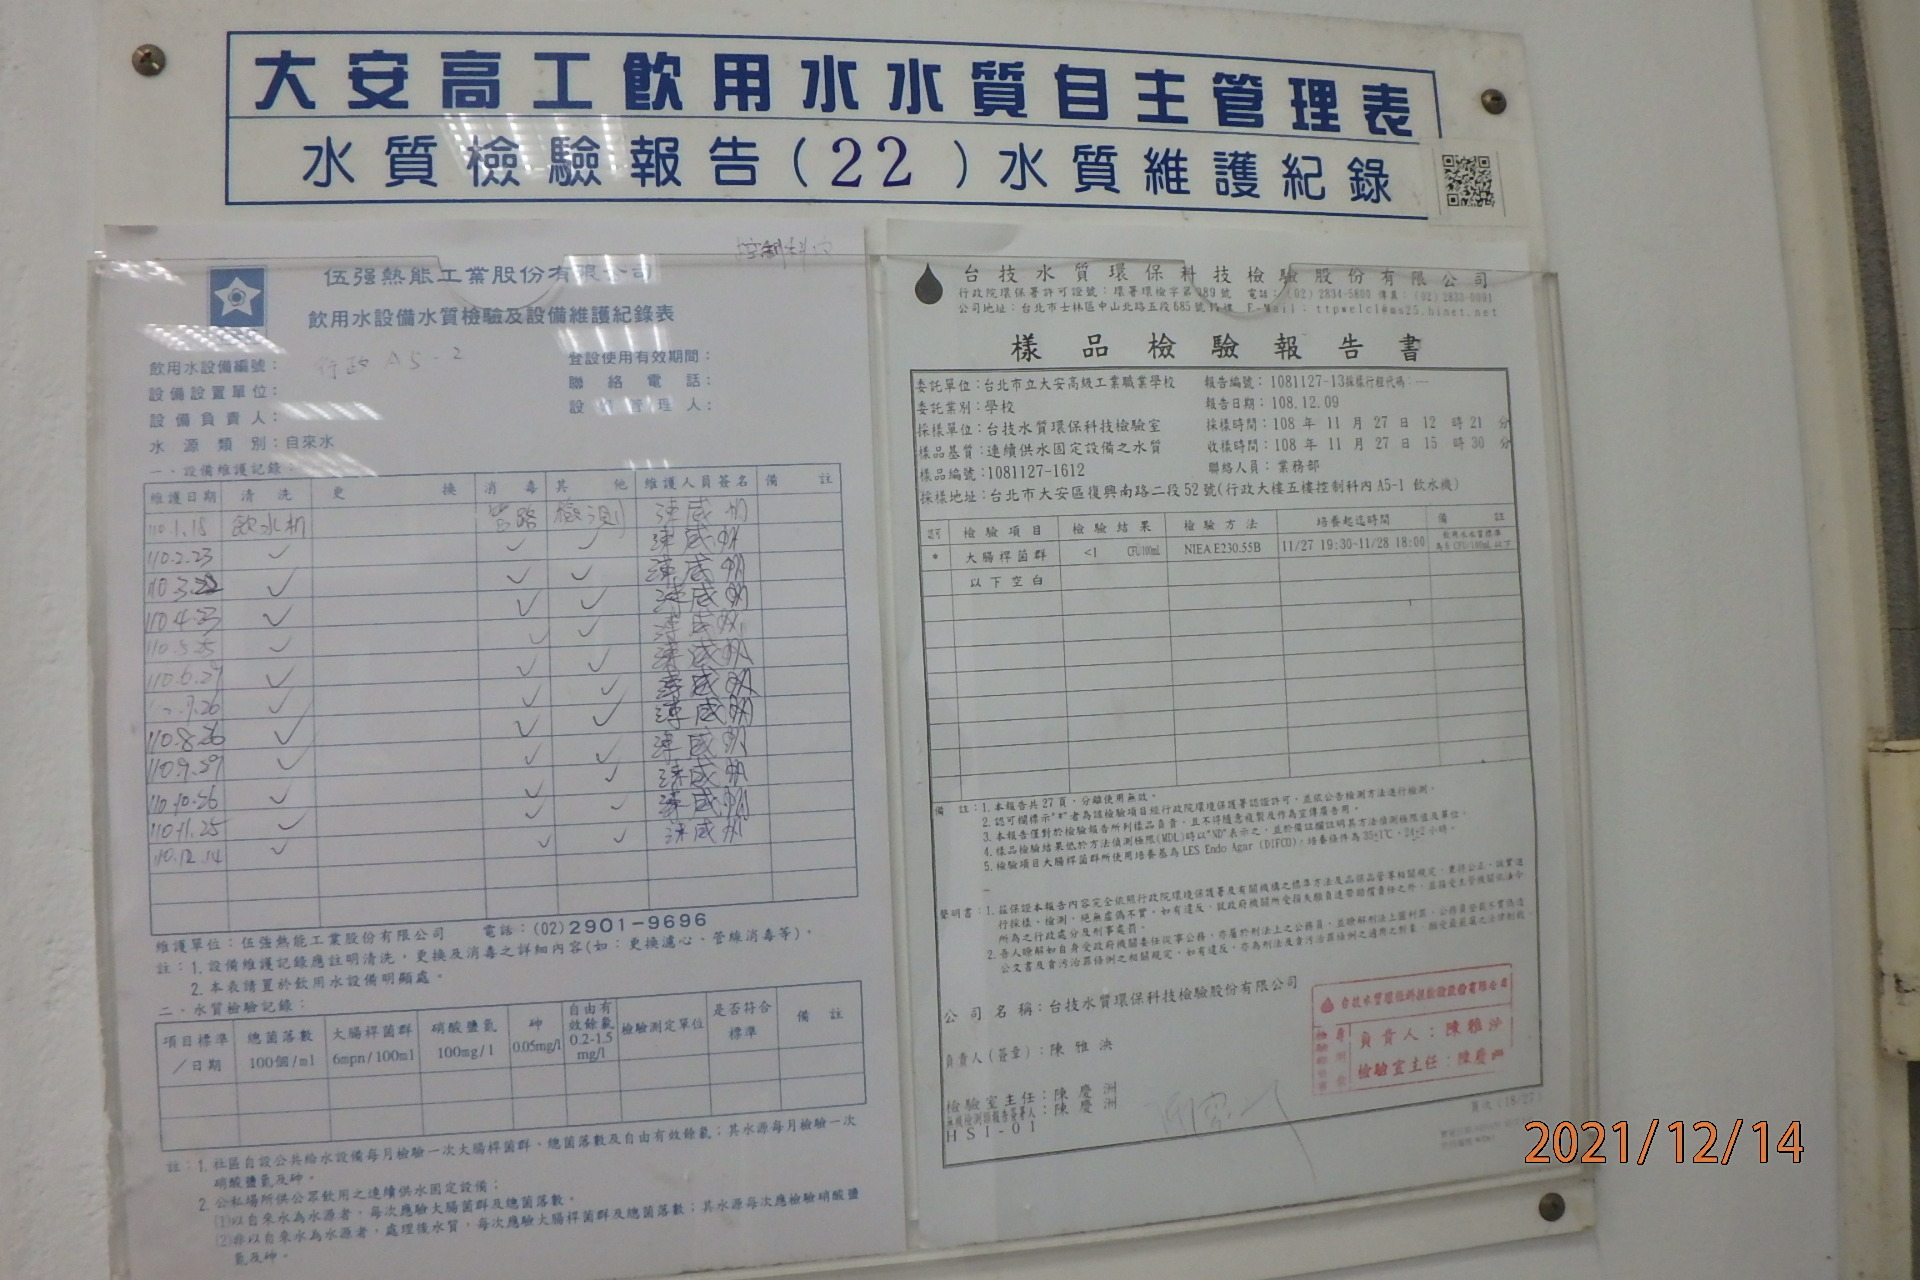 大安高工飲用水水質自主管理表
水質檢驗報告(22)水質維護紀錄
控制科內
伍強熱能工業股份有限公司
飲用水設備水質檢驗及設備維護紀錄表
飲用水設備編號：行政 A5-2
登設使用有效期間：
設備設置單位：
聯絡電話：
設備負責人：
設備管理人：
水源類別：自來水
一、設備維護記錄：
維護日期 清洗 更換 消毒 其他 維護人員簽名 備註
110.1.18 飲水机 管路 檢測
110.2.23 ✓ ✓ ✓
110.3.22 ✓ ✓ ✓
110.4.23 ✓ ✓ ✓
110.5.25 ✓ ✓ ✓
110.6.29 ✓ ✓ ✓
7.26 ✓ ✓ ✓
110.8.26 ✓ ✓ ✓
110.9.29 ✓ ✓ ✓
110.10.26 ✓ ✓ ✓
110.11.25 ✓ ✓ ✓
110.12.14 ✓ ✓ ✓
維護單位：伍強熱能工業股份有限公司 電話：(02)2901-9696
註：1.設備維護記錄應註明清洗，更換及消毒之詳細內容(如：更換濾心、管線消毒等)。
2.本表請置於飲用水設備明顯處。
二、水質檢驗記錄：
項目標準/日期 總菌落數 100個/ml 大腸桿菌群 6mpn/100ml 硝酸鹽氮 100mg/l 砷 0.05mg/l 自由有效餘氯 0.2-1.5 mg/l 檢驗測定單位 是否符合標準 備註
註：1.社區自設公共給水設備每月檢驗一次大腸桿菌群、總菌落數及自由有效餘氯；其水源每月檢驗一次
硝酸鹽氮及砷。
2.公私場所供公眾飲用之連續供水固定設備；
(1)以自來水為水源者，每次應驗大腸桿菌群及總菌落數。
(2)非以自來水為水源者，處理後水質，每次應驗大腸桿菌群及總菌落數；其水源每次應檢驗硝酸鹽
氮及砷。
台技水質環保科技檢驗股份有限公司
行政院環保署許可證號：環署環檢字第089號 電話：(02)2834-5800 傳真：
公司地址：台北市士林區中山北路五段685號 E-Mail：ttpwelcl@ms25.hinet.net
樣品檢驗報告書
委託單位：台北市立大安高級工業職業學校 報告編號：1081127-13採樣行程代碼：---
委託業別：學校 報告日期：108.12.09
採樣單位：台技水質環保科技檢驗室 採樣時間：108 年 11 月 27 日 12 時 21 分
樣品基質：連續供水固定設備之水質 收樣時間：108 年 11 月 27 日 15 時 30 分
樣品編號：1081127-1612 聯絡人員：業務部
採樣地址：台北市大安區復興南路二段52號(行政大樓五樓控制科內 A5-1 飲水機)
認可 檢驗項目 檢驗結果 檢驗方法 培養起迄時間 備註
* 大腸桿菌群 <1 CFU/100mL NIEA E230.55B 11/27 19:30-11/28 18:00 飲用水水質標準為6 CFU/100mL以下
以下空白
備註：1.本報告共27頁，分離使用無效。
2.認可欄標示"*"者為該檢驗項目經行政院環境保護署認證許可，並依公告檢測方法進行檢測。
3.本報告僅對於檢驗報告所列樣品負責，且不得隨意複製及作為宣傳廣告用。
4.樣品檢驗結果低於方法偵測極限(MDL)時以"ND"表示之，並於備註欄註明其方法偵測極限值及單位。
5.檢驗項目大腸桿菌群所使用培養基為LES Endo Agar (DIFCO)，培養條件為 35±1℃，24±2小時。
聲明書：1.茲保證本報告內容完全依照行政院環境保護署及有關機構之標準方法及品保品管等相關規定，秉持公正、誠實進
行採樣、檢測，絕無虛偽不實，如有違反，就政府機關所受損失願負連帶賠償責任之外，並接受主管機關依法令
所為之行政處分及刑事處罰。
2.吾人瞭解如自身受政府機關委任從事公務，亦屬於刑法上之公務員，並瞭解刑法上圖利罪、公務員登載不實偽造
公文書及貪污治罪條例之相關規定，如有違反，亦為刑法及貪污治罪條例之適用之對象，願受最嚴厲之法律制裁。
公司名稱：台技水質環保科技檢驗股份有限公司
負責人(簽章)：陳雅泱
檢驗室主任：陳慶洲
無機檢測類報告簽署人：陳慶洲
HSI-01
台技水質環保科技檢驗股份有限公司
負責人：陳雅泱
檢驗室主任：陳慶洲
頁次(18/27)
2021/12/14